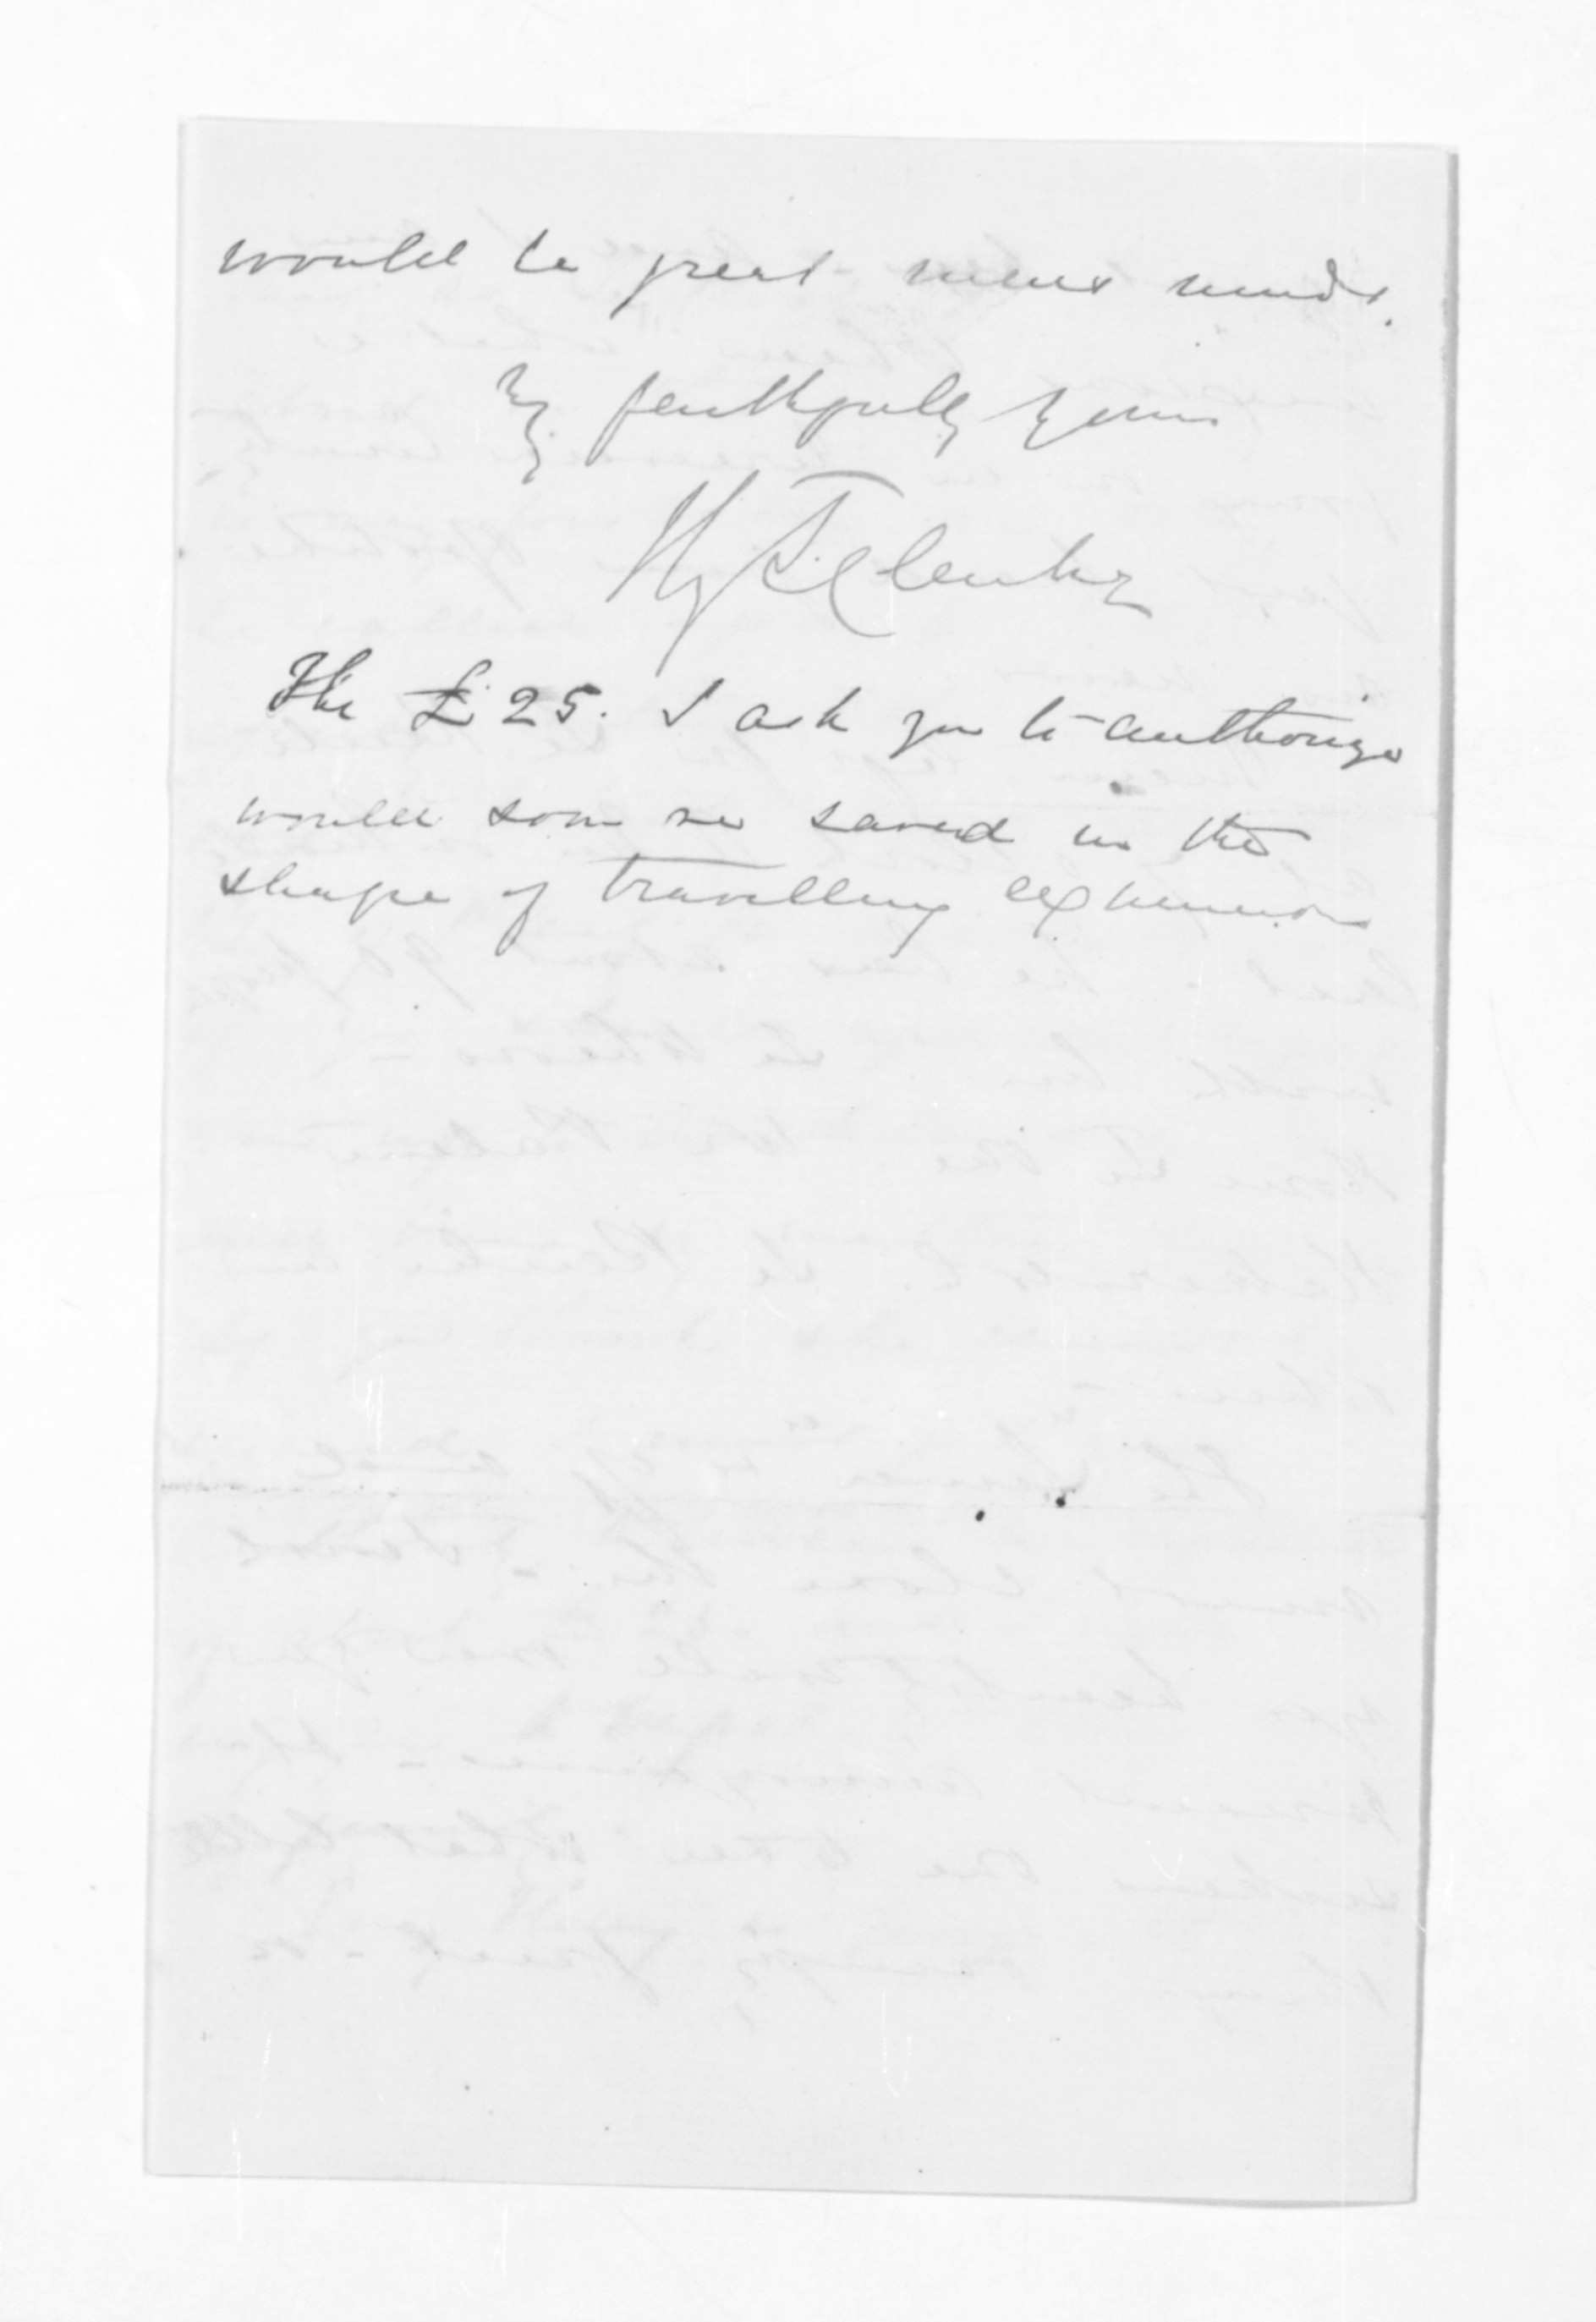 would be great
faithfully yours
Hy T Clarke
The £25. I ask you to authorize
would soon be saved in the
shape of travelling expenses